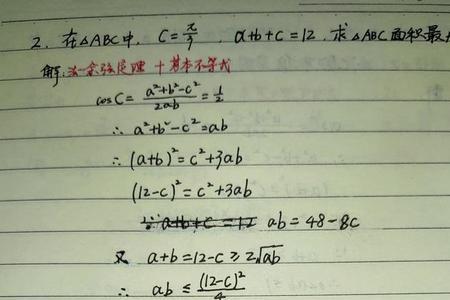 2. 在△ABC中, C=π/3, a+b+c=12, 求△ABC面积最
解: 法一余弦定理+基本不等式
cosC=(a²+b²-c²)/2ab=1/2
∴ a²+b²-c²=ab
∴ (a+b)²=c²+3ab
(12-c)²=c²+3ab
∵ a+b+c=12 ab=48-8c
又 a+b=12-c≥2√ab
∴ ab≤(12-c)²/4